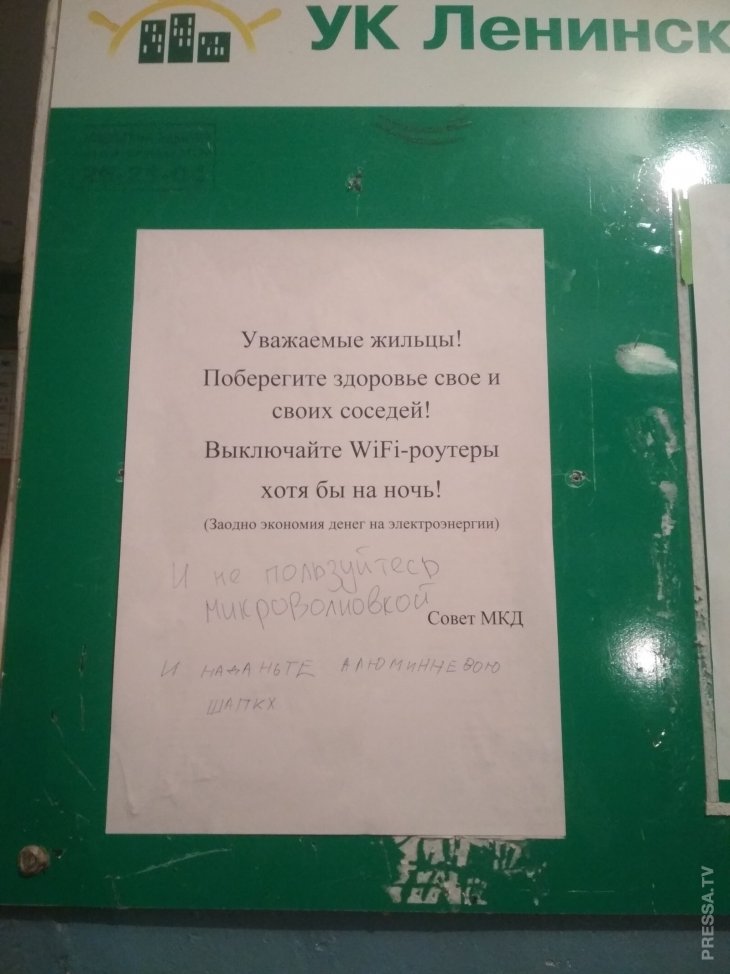 УК Ленинск
Уважаемые жильцы!
Поберегите здоровье свое и
своих соседей!
Выключайте WiFi-роутеры
хотя бы на ночь!
(Заодно экономия денег на электроэнергии)
И не пользуйтесь
микроволновкой
Совет МКД
И НАДАНЬТЕ АЛЮМИННЕВОЮ
ШАПКУ
PRESSA.TV